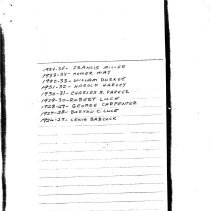 1934-35- FRANCIS MILLER
1933-34- HOMER MAY
1932-33- WILLIAM DURKEE
1931-32- HAROLD HARVEY
1930-31- CHARLES S. PARKER
1929-30- ROBERT LUCE
1928-29- GEORGE CARPENTER
1927-28- BURTON C. LUCE
1926-27- LEWIS BABCOCK